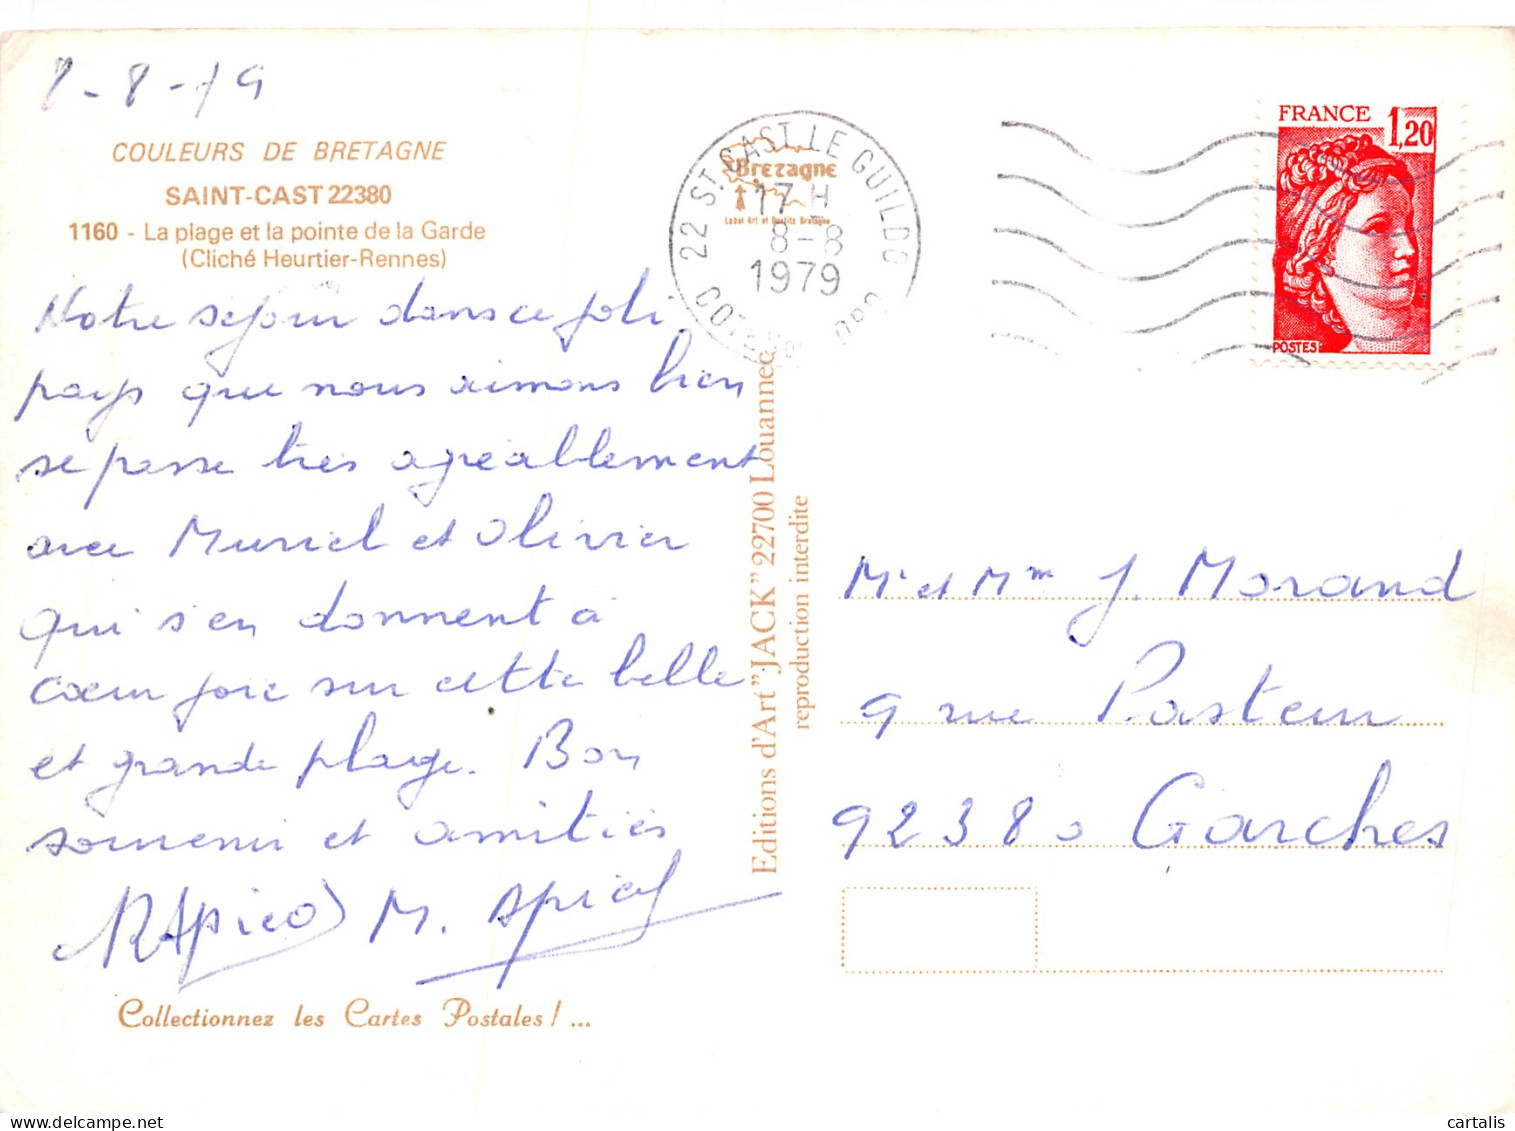 8-8-79
COULEURS DE BRETAGNE
SAINT-CAST 22380
1160 - La plage et la pointe de la Garde
(Cliché Heurtier-Rennes)
Notre séjour dans ce joli
pays que nous aimons bien
se passe très agréablement
avec Muriel et Olivier
qui s'en donnent à
cœur joie sur cette belle
et grande plage. Bon
souvenir et amitiés
M.
Collectionnez les Cartes Postales ! ...
Editions d'Art "JACK" 22700 Louannec
reproduction interdite
Bretagne
Label Art et Qualité Bretagne
22 ST CAST LE GUILDO
17 H
8-8
1979
FRANCE 1,20
POSTES
Mr et Mme J. Morand
9 rue Pasteur
92380 Garches
cartalis